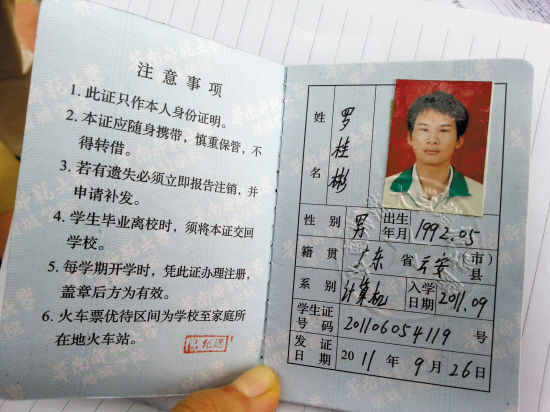 注意事项
1. 此证只作本人身份证明。
2. 本证应随身携带，慎重保管，不
得转借。
3. 若有遗失必须立即报告注销，并
申请补发。
4. 学生毕业离校时，须将本证交回
学校。
5. 每学期开学时，凭此证办理注册，
盖章后方为有效。
6. 火车票优待区间为学校至家庭所
在地火车站。
姓名 罗桂彬
性别 男 出生年月 1992.05
籍贯 广东 省 云安 (市)县
系别 计算机 入学日期 2011.09
学生证号码 201106054119 号
发证日期 2011年9月26日